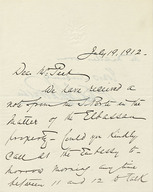 July 19, 1912.
Dear Mr Peet
We have received a
note from the S. Porte in the
matter of the Elbassan
property. Could you kindly
call at the Embassy to
morrow morning any time
between 11 and 12 to talk